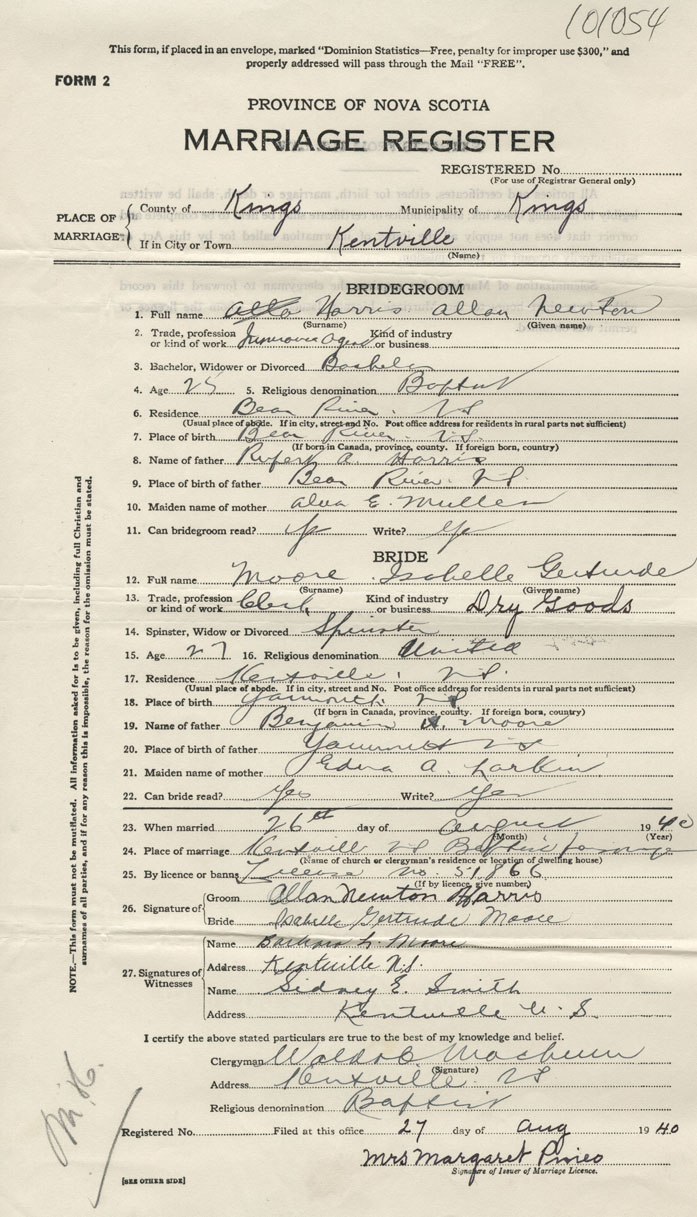 101054
This form, if placed in an envelope, marked "Dominion Statistics—Free, penalty for improper use $300," and
properly addressed will pass through the Mail "FREE".
FORM 2
PROVINCE OF NOVA SCOTIA
MARRIAGE REGISTER
REGISTERED No.
(For use of Registrar General only)
PLACE OF MARRIAGE
County of Kings Municipality of Kings
If in City or Town Kentville
(Name)
BRIDEGROOM
1. Full name Harris Allan Newton
(Surname) (Given name)
2. Trade, profession or kind of work Insurance Agent Kind of industry or business
3. Bachelor, Widower or Divorced Bachelor
4. Age 25 5. Religious denomination Baptist
6. Residence Bear River. NS
(Usual place of abode. If in city, street and No. Post office address for residents in rural parts not sufficient)
7. Place of birth Bear River. N.S.
(If born in Canada, province, county. If foreign born, country)
8. Name of father Rupert A Harris
9. Place of birth of father Bear River. NS
10. Maiden name of mother Alva E. Mullen
11. Can bridegroom read? yes Write? yes
BRIDE
12. Full name Moore Isabelle Gertrude
(Surname) (Given name)
13. Trade, profession or kind of work Clerk Kind of industry or business Dry Goods
14. Spinster, Widow or Divorced Spinster
15. Age 27 16. Religious denomination United
17. Residence Kentville. N.S.
(Usual place of abode. If in city, street and No. Post office address for residents in rural parts not sufficient)
18. Place of birth Yarmouth NS
(If born in Canada, province, county. If foreign born, country)
19. Name of father Benjamin A. Moore
20. Place of birth of father Yarmouth NS
21. Maiden name of mother Edna A. Larkin
22. Can bride read? Yes Write? Yes
23. When married 26th day of August 1940
(Month) (Year)
24. Place of marriage Kentville NS Baptist parsonage
(Name of church or clergyman's residence or location of dwelling house)
25. By licence or banns License No. 51866
(If by licence, give number)
26. Signature of
Groom Allan Newton Harris
Bride Isabelle Gertrude Moore
27. Signatures of Witnesses
Name Barbara L. Moore
Address Kentville N.S.
Name Sidney E. Smith
Address Kentville N.S.
I certify the above stated particulars are true to the best of my knowledge and belief.
Clergyman
(Signature)
Address Kentville NS
Religious denomination Baptist
Registered No. Filed at this office 27 day of Aug 1940
Mrs Margaret Pineo
Signature of Issuer of Marriage Licence.
[SEE OTHER SIDE]
NOTE.—This form must not be mutilated. All information asked for is to be given, including full Christian and
surnames of all parties, and if for any reason this is impossible, the reason for the omission must be stated.
M.H.